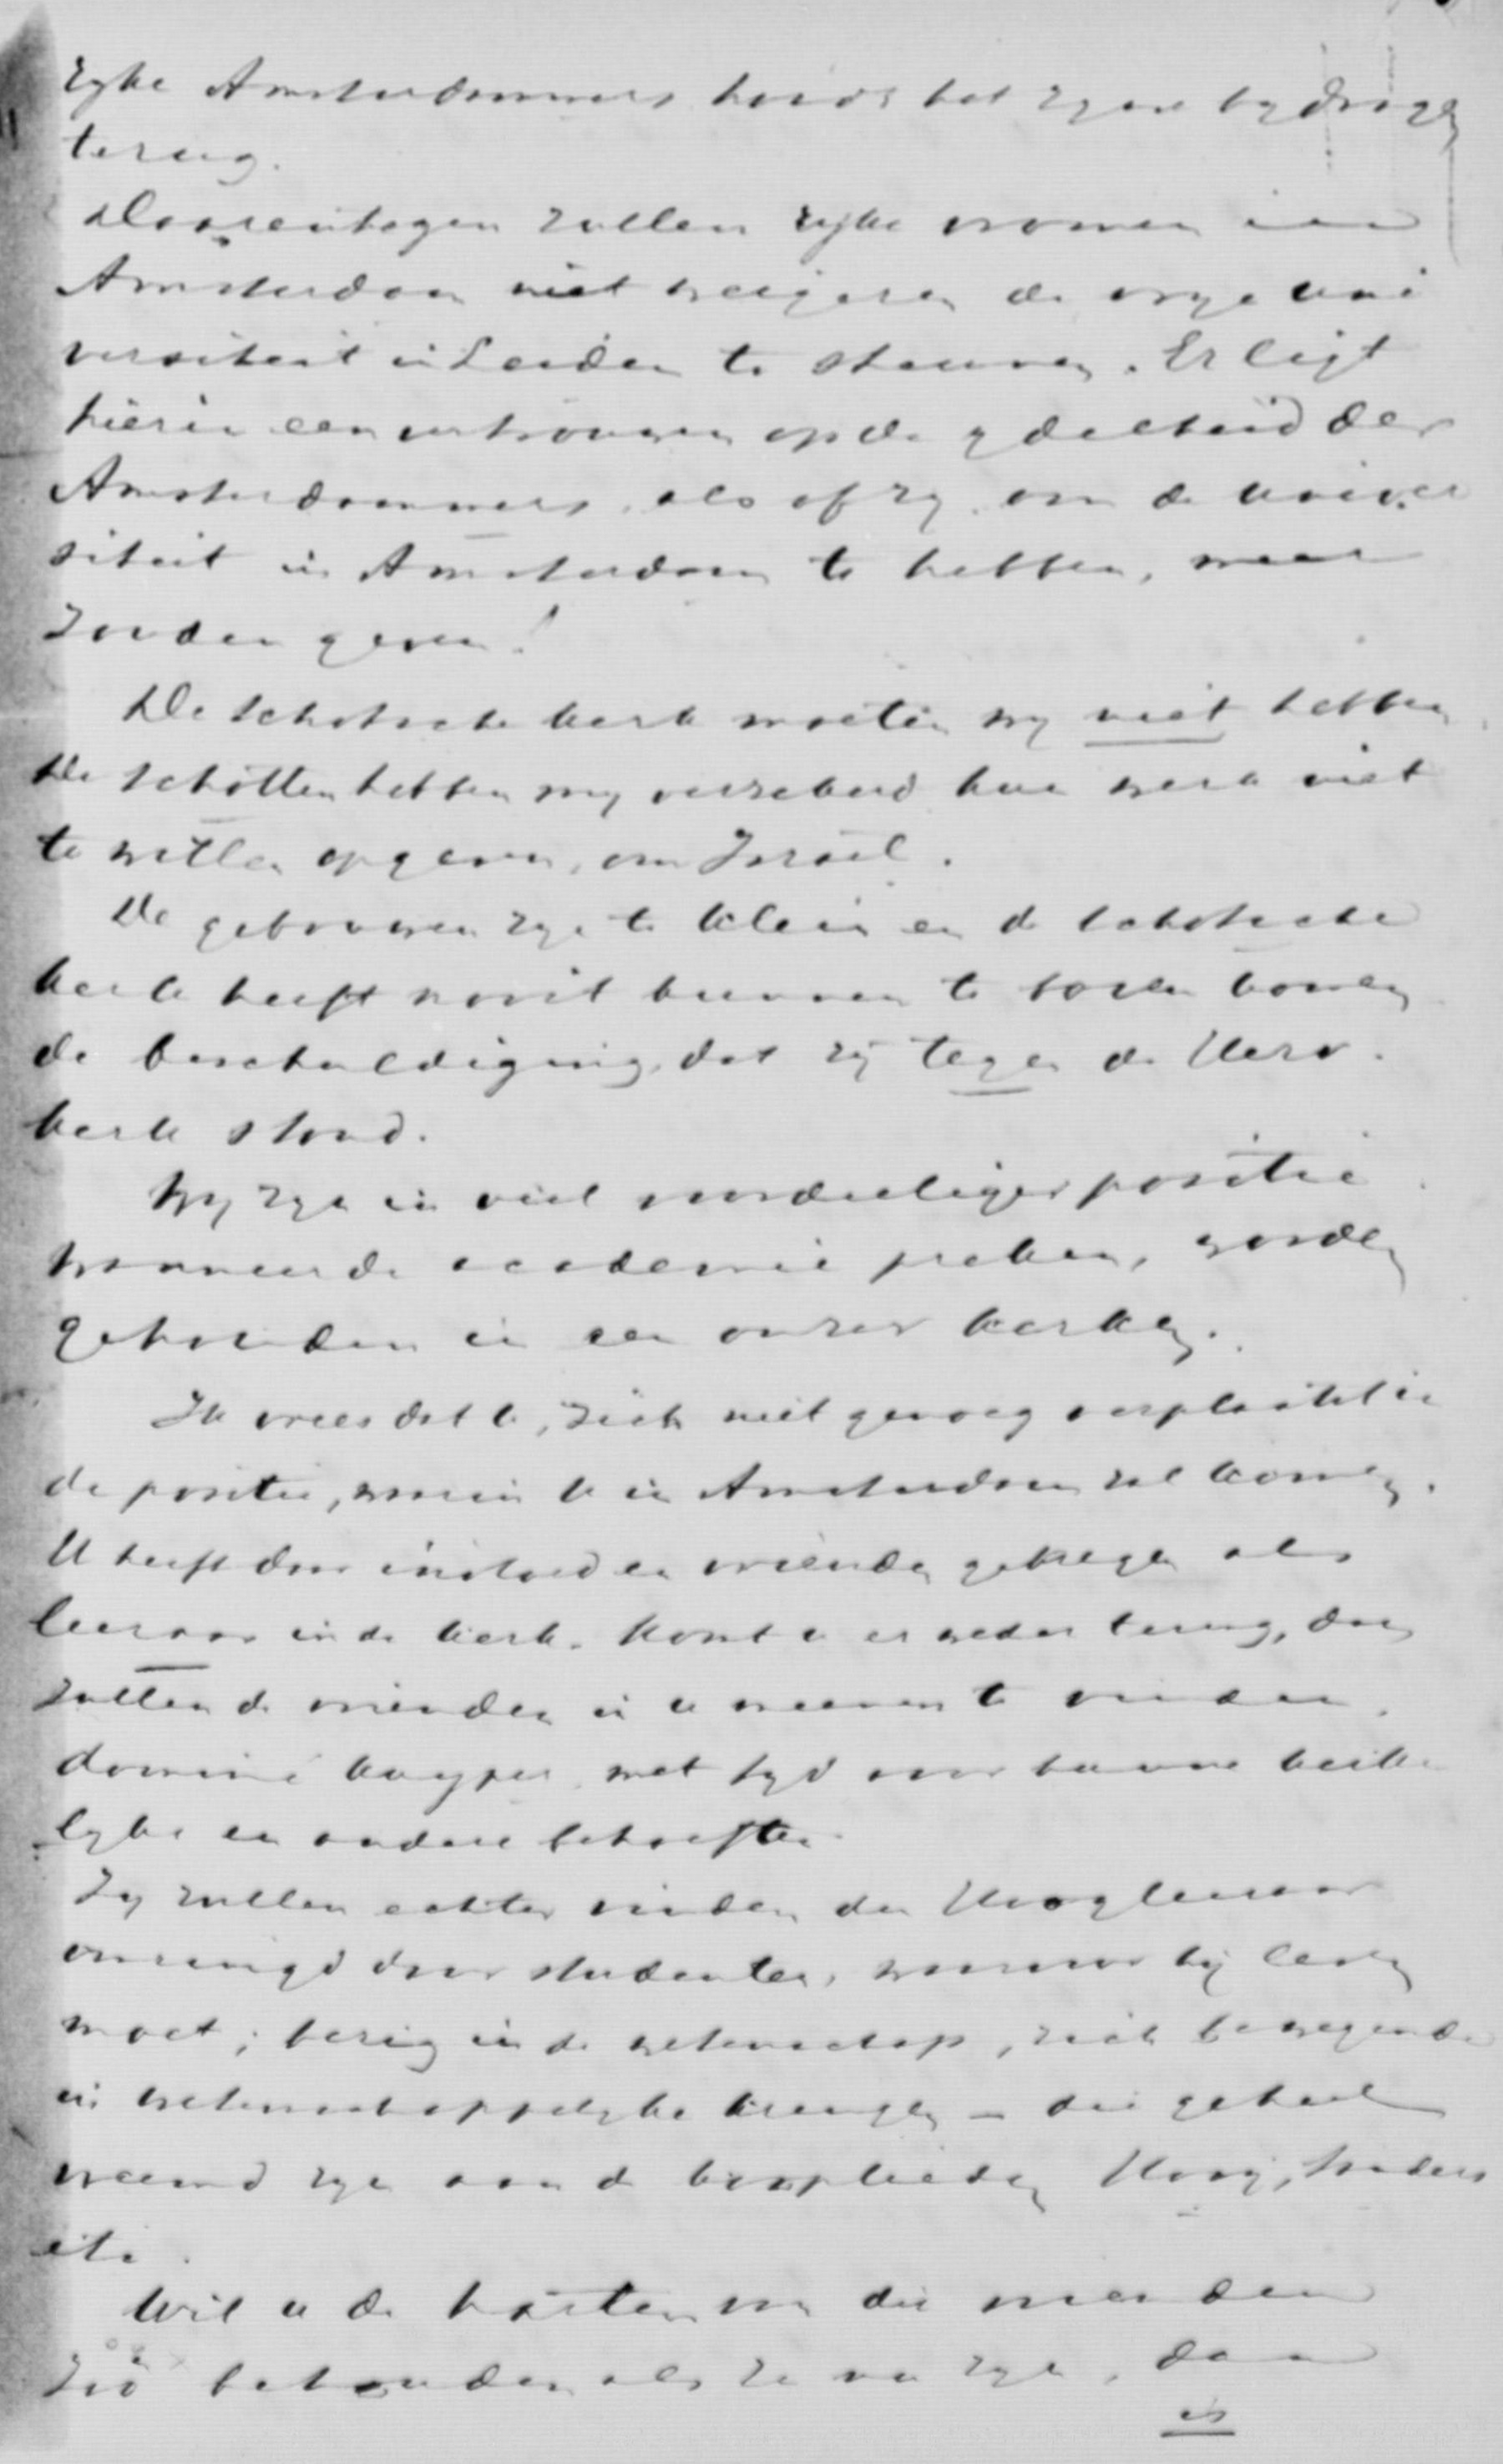 rijke Amsterdammers houdt het zijne bijdragen
terug.
Daarentegen zullen rijke vromen in
Amsterdam niet weigeren de vrye uni
versiteit in Leiden te steunen. Er ligt
hierin een vertrouwen op de ydelheid der
Amsterdammers, alsof zy, om de univer
siteit in Amsterdam te hebben, meer
zouden geven!
De Schotsche kerk moeten wy niet hebben
De Schotten hebben my verzekerd hun werk niet
te willen opgeven, om Israël.
De gebouwen zyn te klein en de Schotsche
kerk heeft nooit kunnen te boven komen
de beschuldiging, dat zij tegen de Herv.
kerk stond.
Wy zyn in veel voordeeliger positie
wanneer de academie preken, worden
gehouden in een onzer kerken.
Ik vrees dat U, zich niet genoeg verplaatst in
de positie, waarin U in Amsterdam zal komen.
U heeft daar invloed en vrienden gekregen als
leeraar in de kerk. Komt u er weder terug, dan
zullen de vrienden in u meenen te vinden
dominé Kuyper, met tyd voor hunne kerke
lyke en andere behoeften.
Zy zullen echter vinden den Hoogleeraar
omringd door studenten, waarvoor hij leven
moet; bezig in de wetenschap, zich bewegende
in wetenschappelyke kringen – die geheel
vreemd zyn aan de kooplieden Hovy, Wolters
etc.
Wil u de harten van die vrienden
zóó behouden als ze nu zyn, dan
is